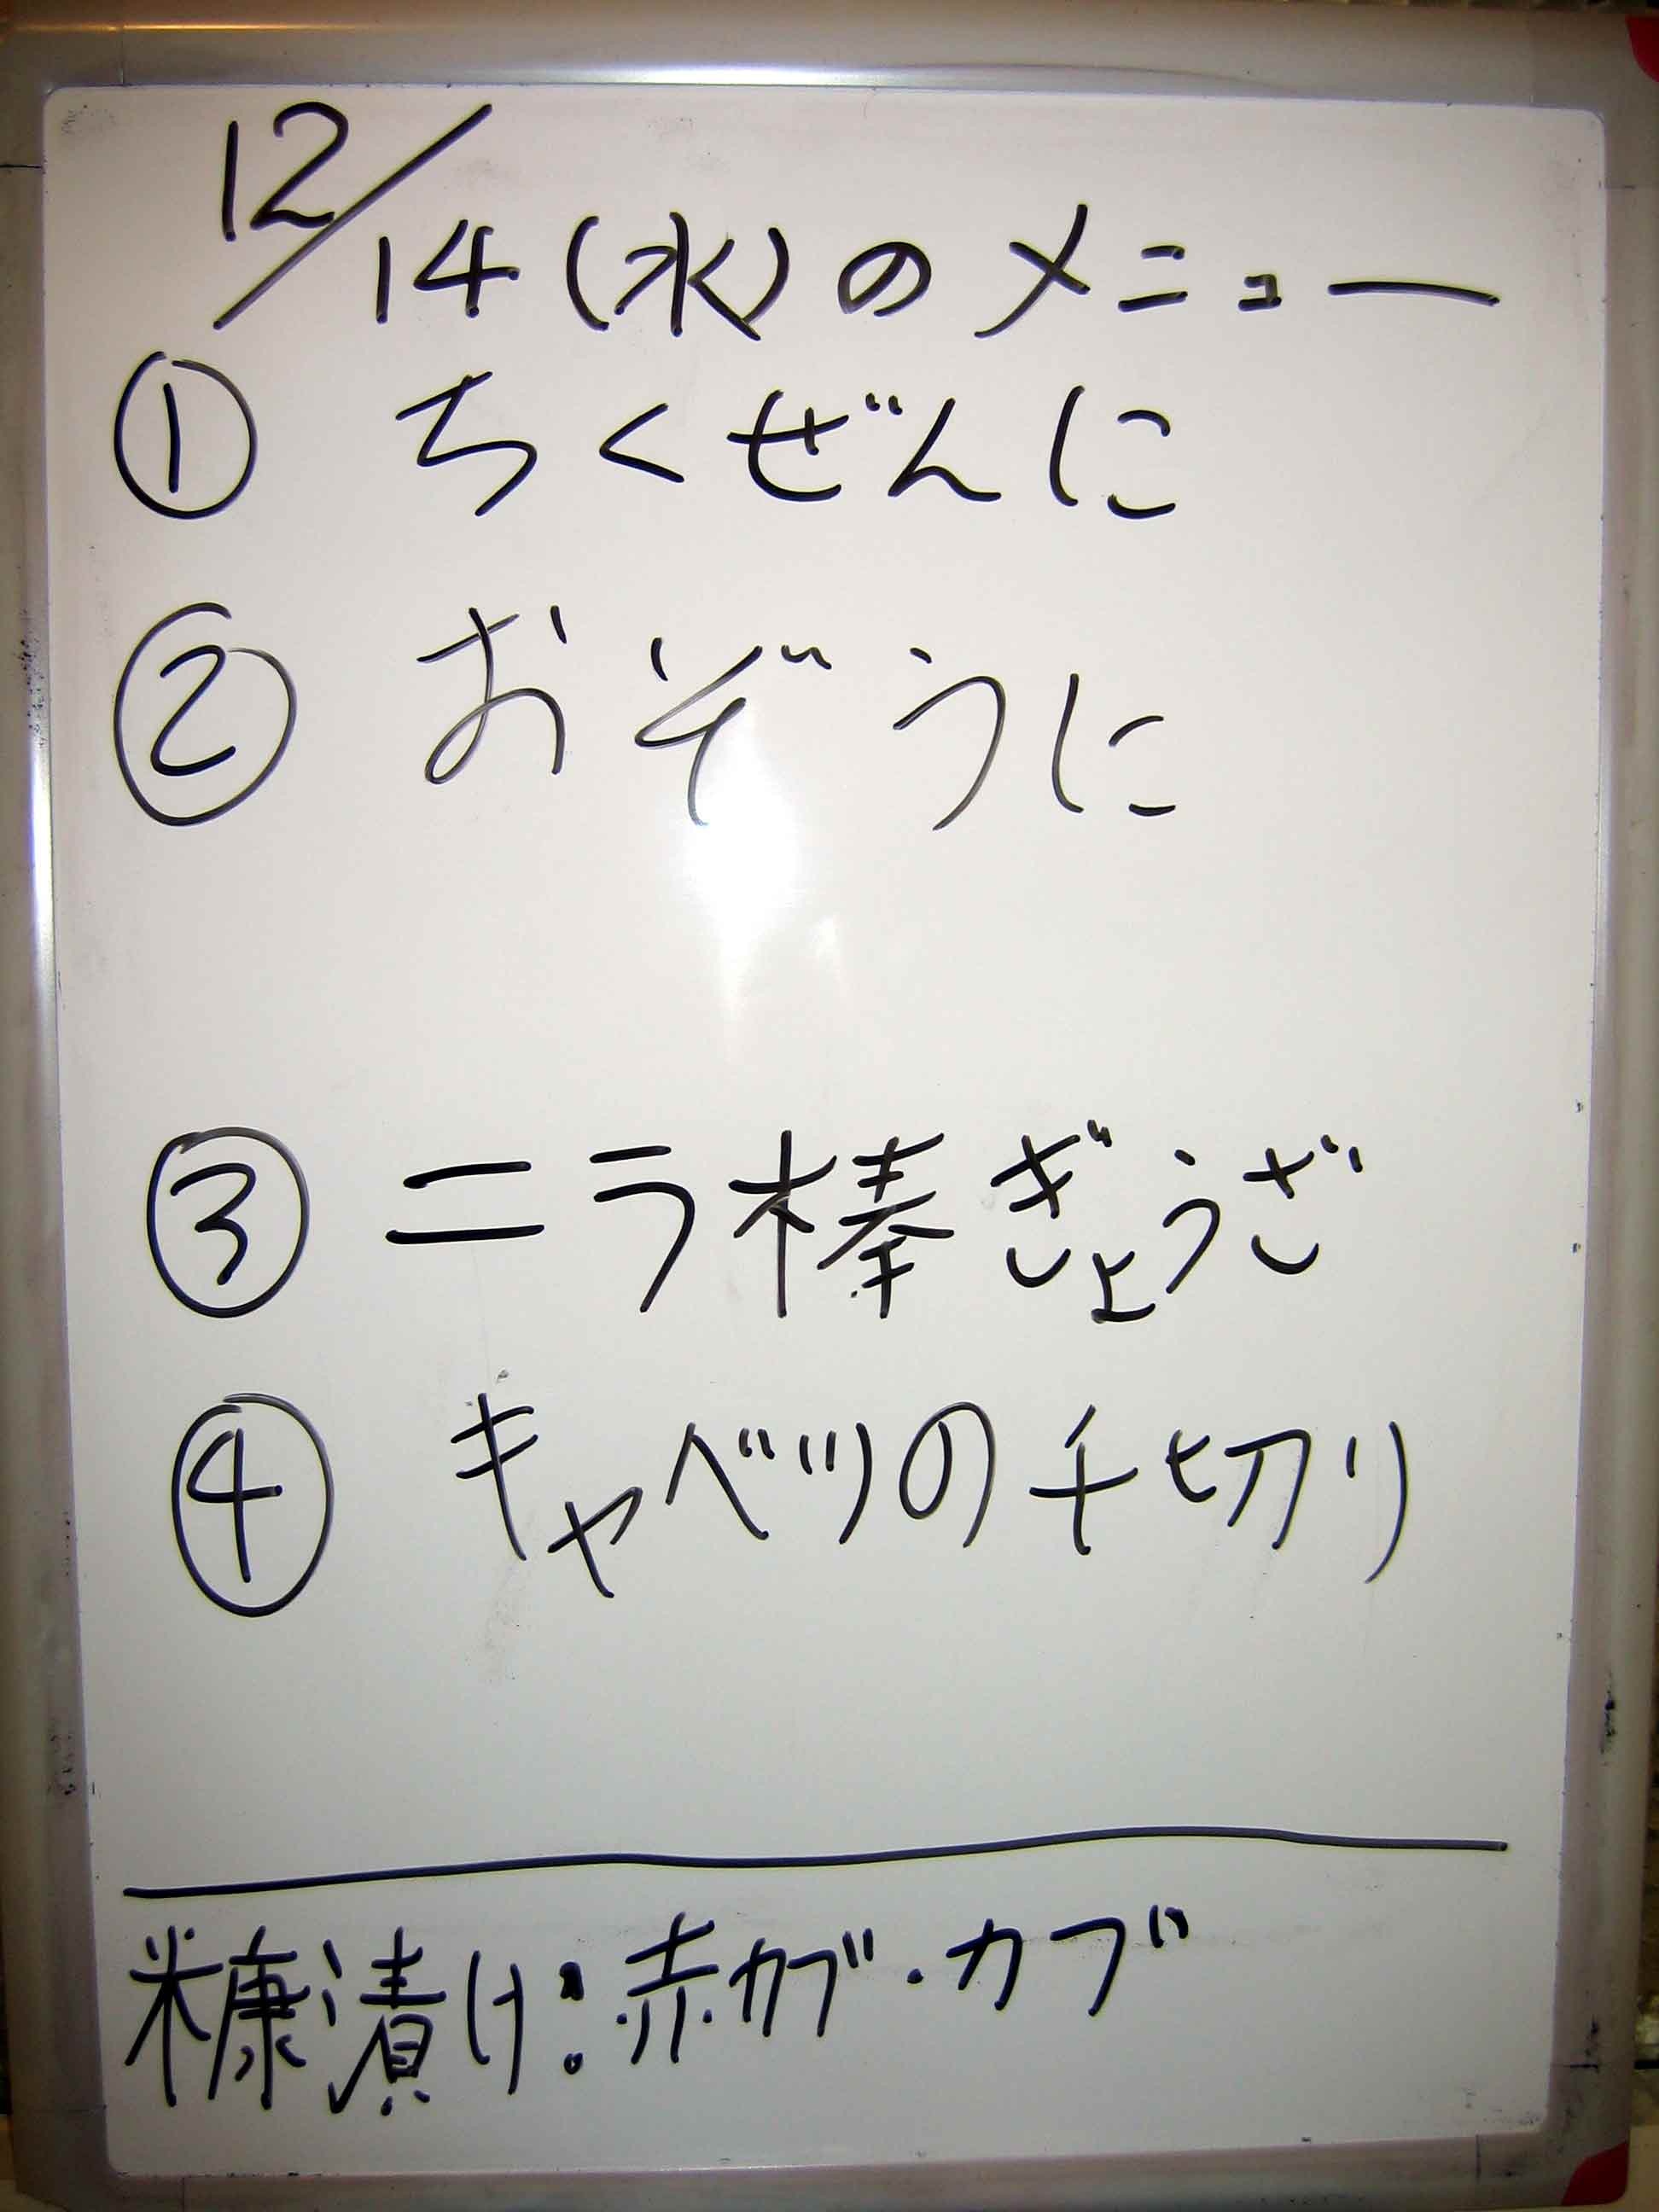 12/14(水)のメニュー
① ちくぜんに
② おぞうに
③ ニラ棒ぎょうざ
④ キャベツの千切り
糠漬け:赤カブ・カブ